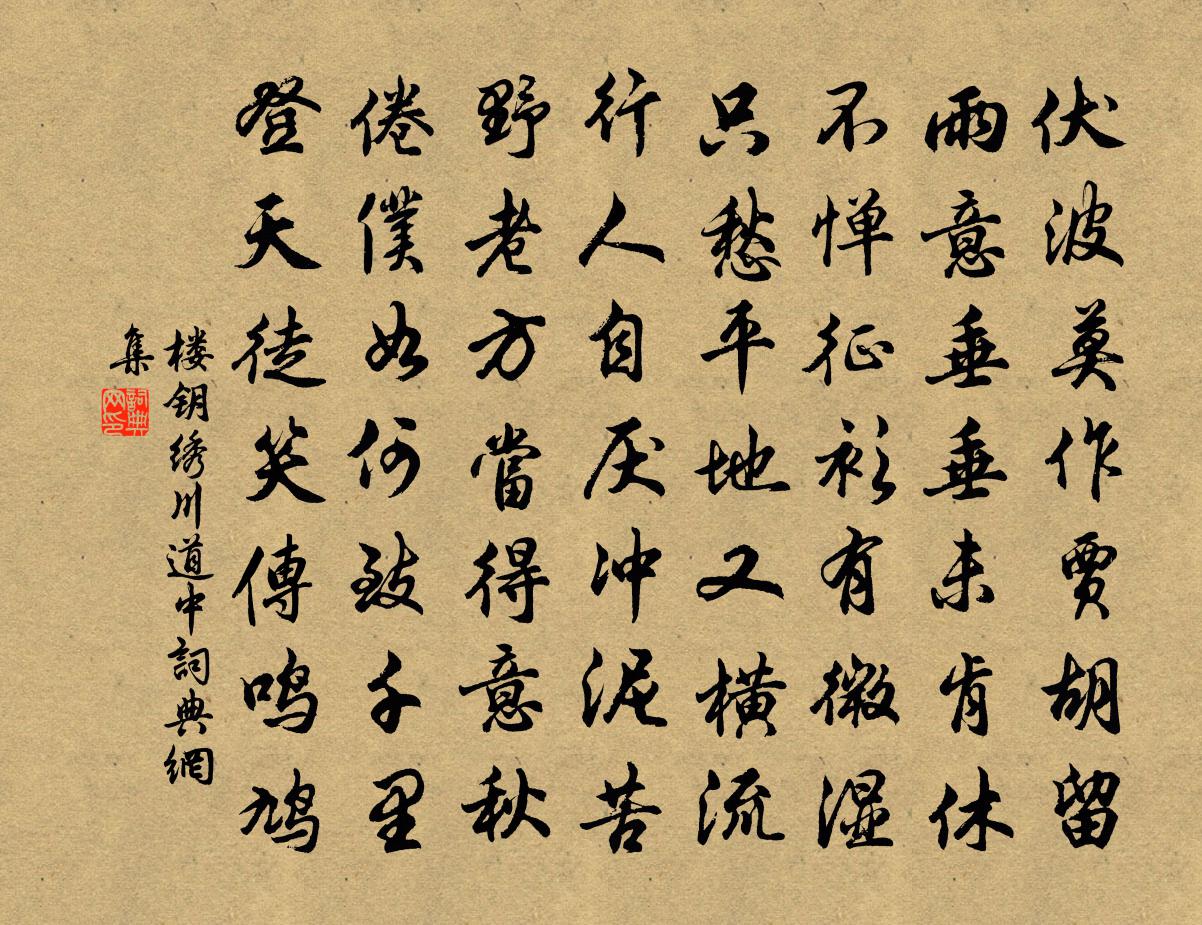 伏波莫作贾胡留
雨意垂垂未肯休
不惮征衫有微湿
只愁平地又横流
行人自厌冲泥苦
野老方當得意秋
倦僕如何致千里
登天徒笑傳鸣鸠
楼钥绣川道中詞典網
集
詞典
网印